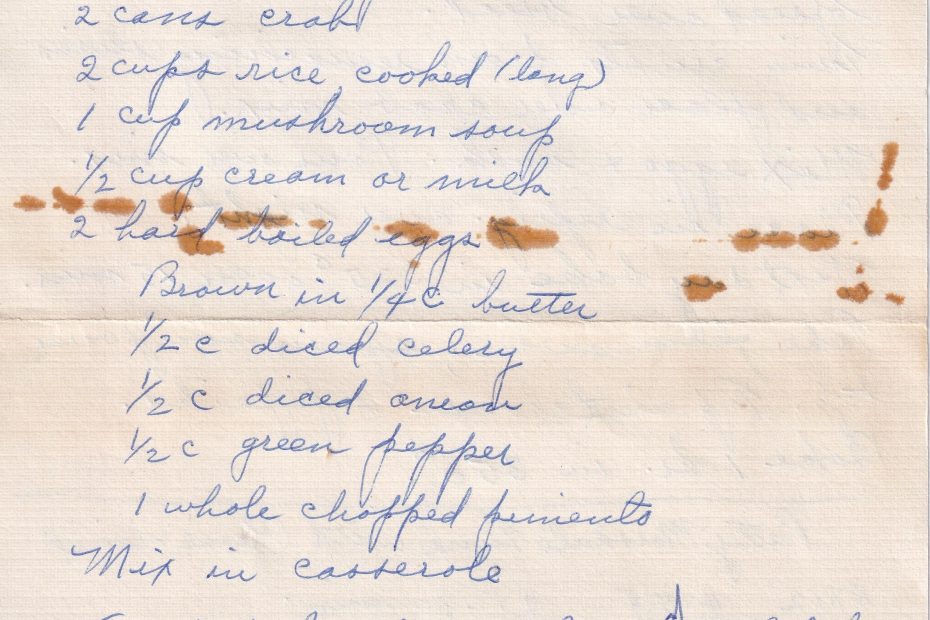 2 cans crab
2 cups rice cooked (long)
1 cup mushroom soup
1/2 cup cream or milk
2 hard boiled eggs
Brown in 1/4 c butter
1/2 c diced celery
1/2 c diced onion
1/2 c green pepper
1 whole chopped pimento
Mix in casserole